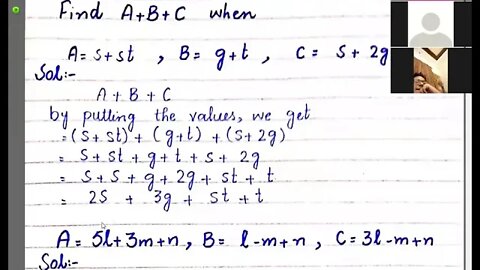 Find A+B+C when
A = s+st , B = g+t , C = s + 2g
Sol:-
A + B + C
by pulling the values, we get
= (s + st) + (g+t) + (s+ 2g)
= s + st + g + t + s + 2g
= s + s + g + 2g + st + t
= 2s + 3g + st + t
A = 5l+3m+n , B = l-m+n , C = 3l-m+n
Sol:-